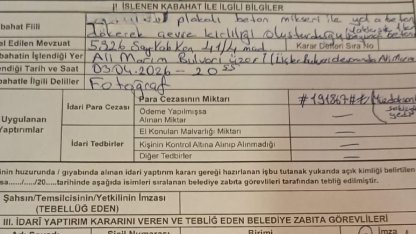 II İŞLENEN KABAHAT İLE İLGİLİ BİLGİLER
bahat Fiili plakalı beton mikseri ile yola beton
dökerek çevre kirliliği oluşturduğu
lal Edilen Mevzuat 5326 Say Kab Kan 41/4 mad. Karar Defteri Sıra No
bahatin İşlendiği Yer Ali Marim Bulvarı üzeri
lendiği Tarih ve Saat 03.04.2026 - 20 55
bahatle İlgili Deliller Fotoğraf
Uygulanan Yaptırımlar
İdari Para Cezası
Para Cezasının Miktarı #191867#₺
Ödeme Yapılmışsa Alınan Miktar —
İdari Tedbirler
El Konulan Malvarlığı Miktarı —
Kişinin Kontrol Altına Alınıp Alınmadığı —
Diğer Tedbirler —
nin huzurunda / gıyabında alınan idari yaptırım kararı gereği hazırlanan işbu tutanak yukarıda açık kimliği belirtilen
sa...../...../20.....tarihinde aşağıda isimleri sıralanan belediye zabıta görevlileri tarafından tebliğ edilmiştir.
Şahsın/Temsilcisinin/Yetkilinin İmzası
(TEBELLÜĞ EDEN)
III. İDARİ YAPTIRIM KARARINI VEREN VE TEBLİĞ EDEN BELEDİYE ZABITA GÖREVLİLERİ
Adı Soyadı Sicil Numarası Birimi İmza